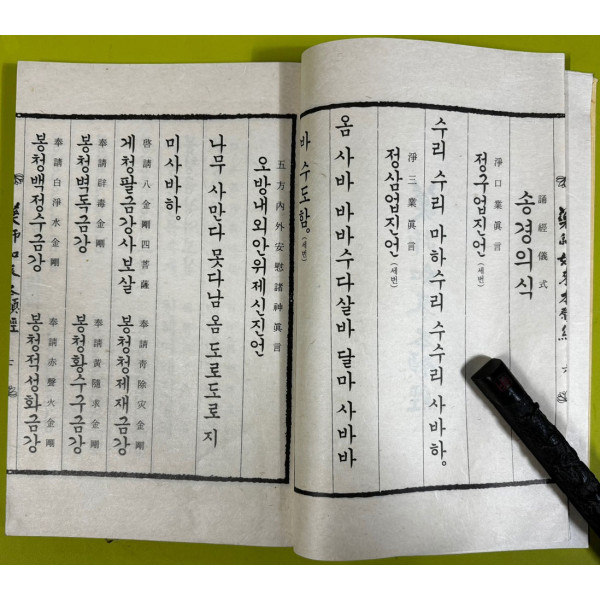 誦經儀式
송경의식
淨口業眞言
정구업진언 (세번)
수리 수리 마하수리 수수리 사바하.
淨三業眞言
정삼업진언 (세번)
옴 사바 바바수다살바 달마 사바바
바 수도함. (세번)
五方內外安慰諸神眞言
오방내외안위제신진언
나무 사만다 못다남 옴 도로도로 지
미사바하.
啓請八金剛四菩薩
계청팔금강사보살
奉請靑除灾金剛
봉청청제재금강
奉請辟毒金剛
봉청벽독금강
奉請黃隨求金剛
봉청황수구금강
奉請白淨水金剛
봉청백정수금강
奉請赤聲火金剛
봉청적성화금강